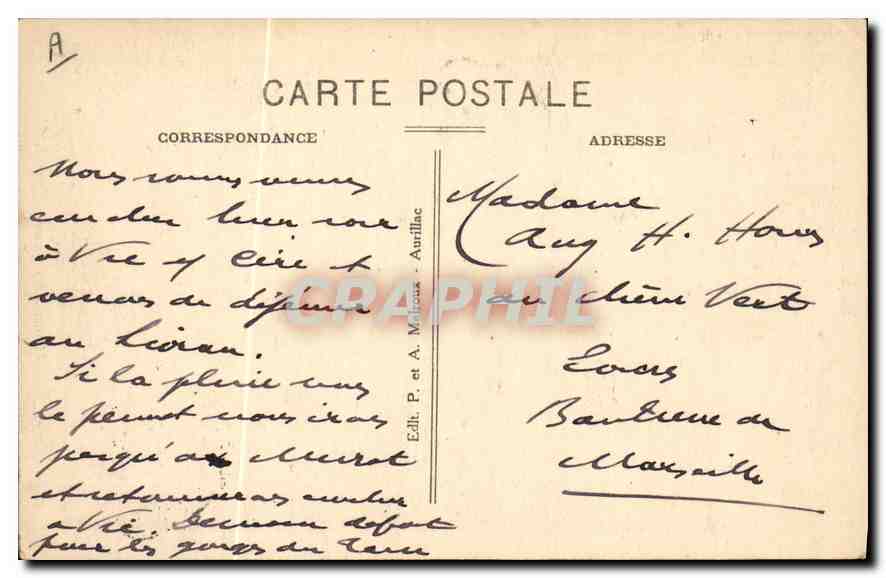 A
CARTE POSTALE
CORRESPONDANCE
ADRESSE
Nous sommes venus
coucher hier soir
à Vic s/ Cère et
venons de déjeuner
au Lioran.
Si la pluie nous
le permet nous irons
jusqu'à Murat
et retournerons coucher
à Vic. Demain départ
pour les gorges du Tarn
Edit. P. et A. Malroux - Aurillac
Madame
Aug H.
au chêne Vert
Banlieue de
Marseille
CPAPHIL